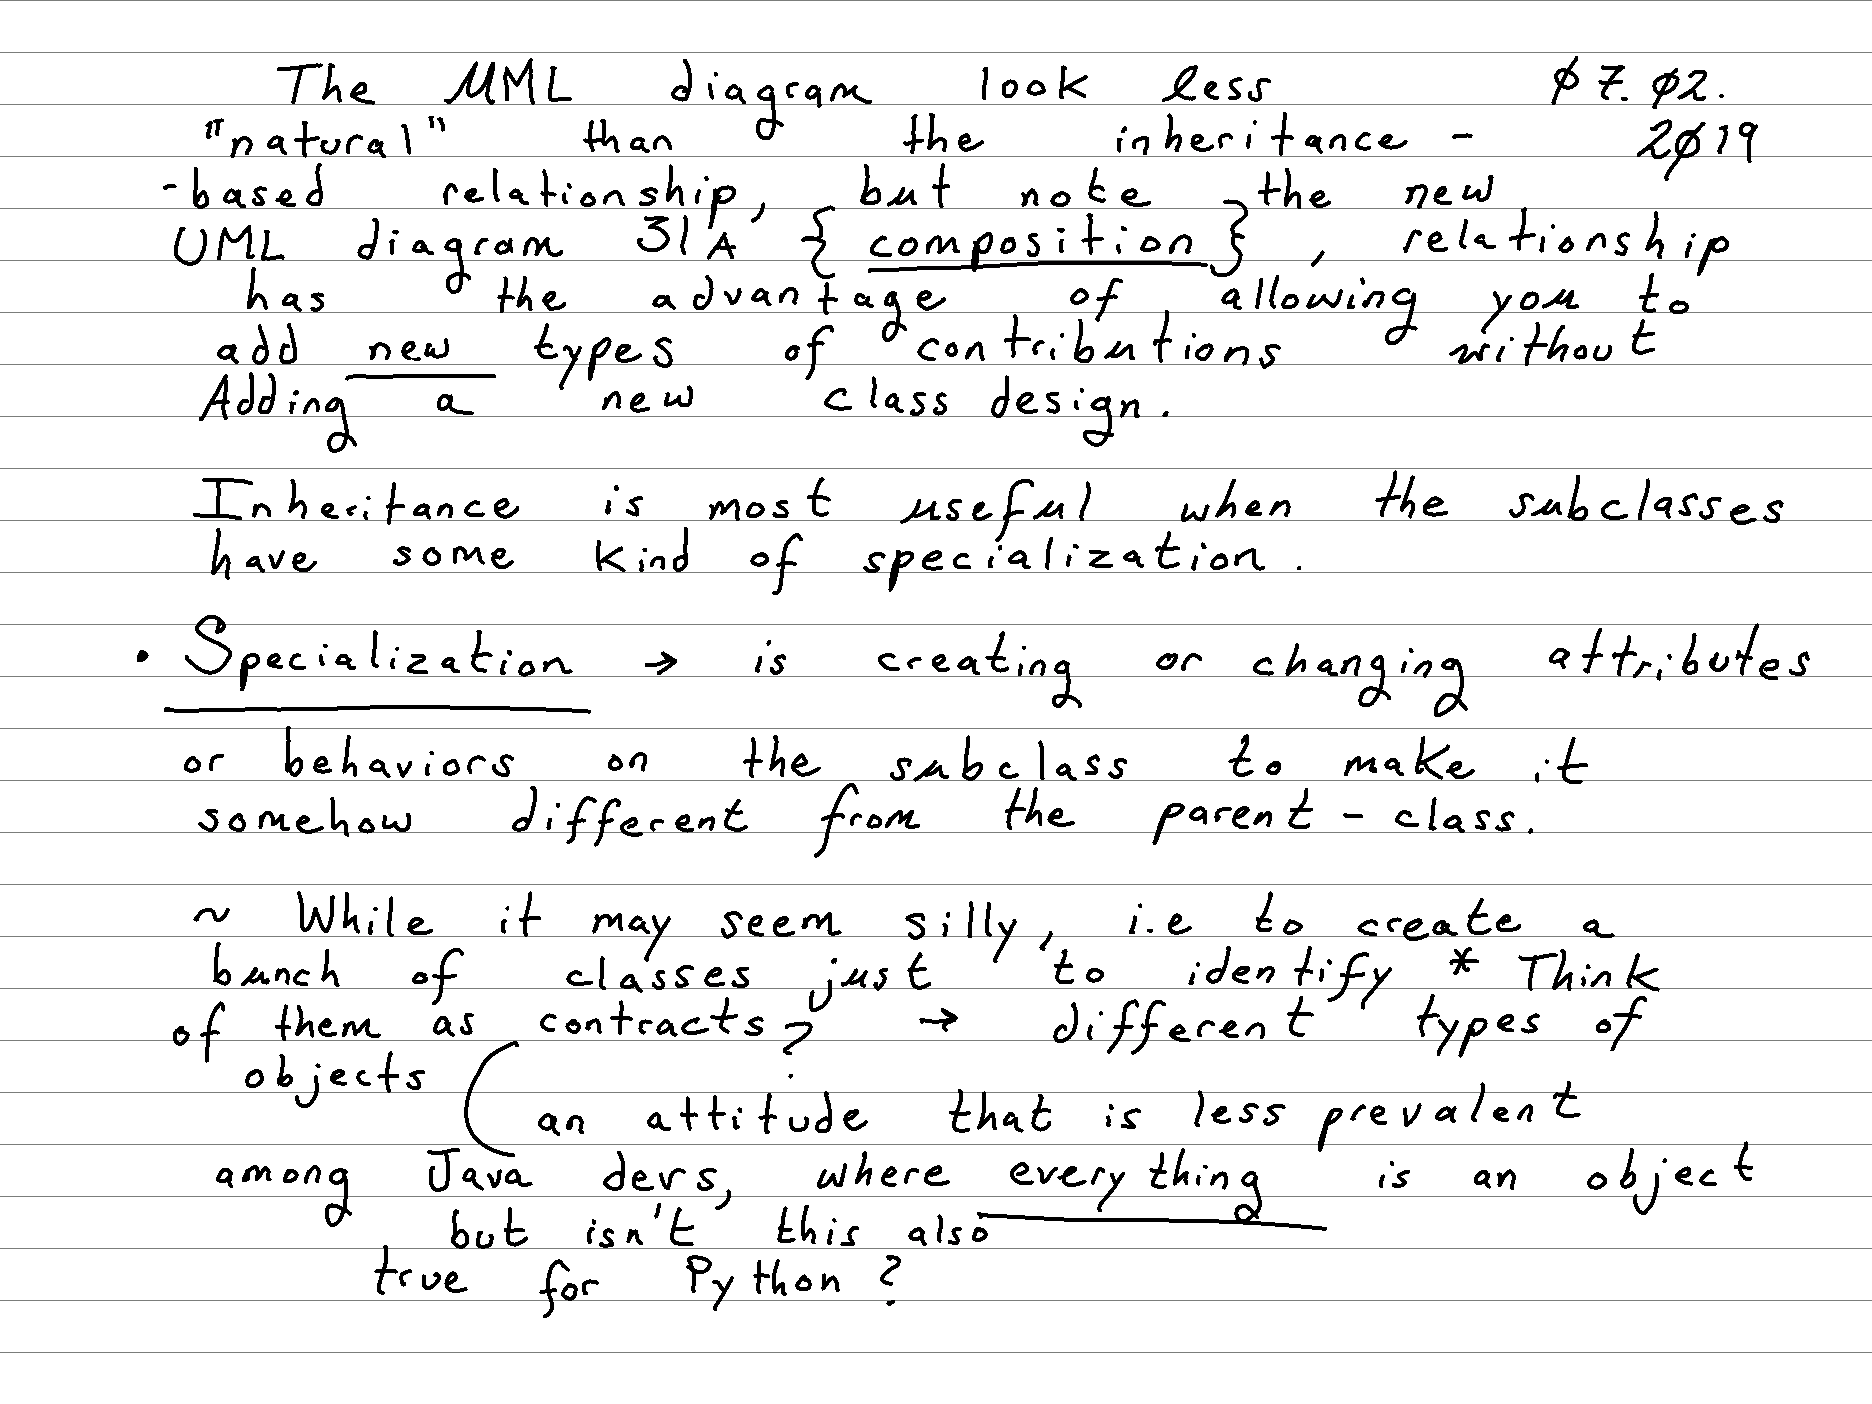 The UML diagram look less 07.02.
"natural" than the inheritance- 2019
-based relationship, but note the new
UML diagram 31A {composition}, relationship
has the advantage of allowing you to
add new types of contributions without
Adding a new class design.
Inheritance is most useful when the subclasses
have some kind of specialization.
• Specialization → is creating or changing attributes
or behaviors on the subclass to make it
somehow different from the parent-class.
~ While it may seem silly, i.e to create a
bunch of classes just to identify * Think
of them as contracts? → different types of
objects
an attitude that is less prevalent
among Java devs, where everything is an object
but isn't this also
true for Python?